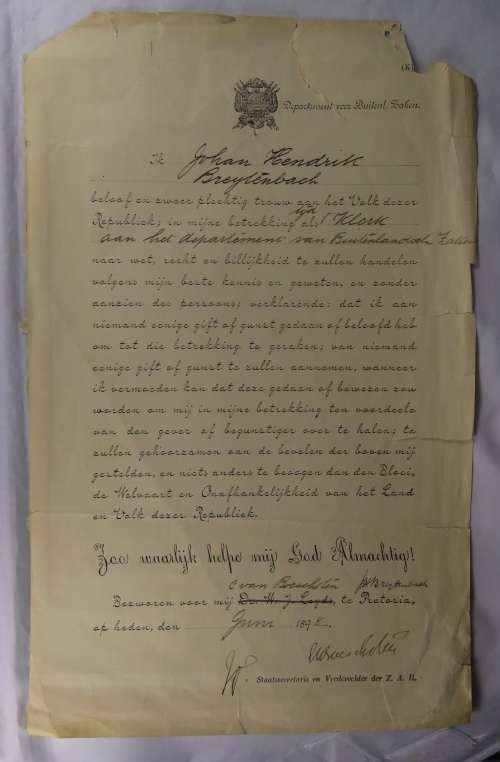 (K)
Departement voor Buitenl. Zaken.
Ik Johan Hendrik
Breytenbach
beloof en zweer plechtig trouw aan het Volk dezer
tijd
Republiek; in mijne betrekking als Klerk
aan het departement van Buitenlandsche Zaken
naar wet, recht en billijkheid te zullen handelen
volgens mijn beste kennis en geweten, en zonder
aanzien des persoons; verklarende: dat ik aan
niemand eenige gift of gunst gedaan of beloofd heb
om tot die betrekking te geraken; van niemand
eenige gift of gunst te zullen aannemen, wanneer
ik vermoeden kan dat deze gedaan of bewezen zou
worden om mij in mijne betrekking ten voordeele
van den gever of begunstiger over te halen; te
zullen gehoorzamen aan de bevelen der boven mij
gestelden, en niets anders te beoogen dan den Bloei,
de Welvaart en Onafhankelijkheid van het Land
en Volk dezer Republiek.
Zoo waarlijk helpe mij God Almachtig!
C van Boeschoten JHBreytenbach
Bezworen voor mij Dr. W. J. Leyds, te Pretoria,
op heden, den Juni 1898.
CvBoeschoten
Wd. Staatssecretaris en Vrederechter der Z. A. R.